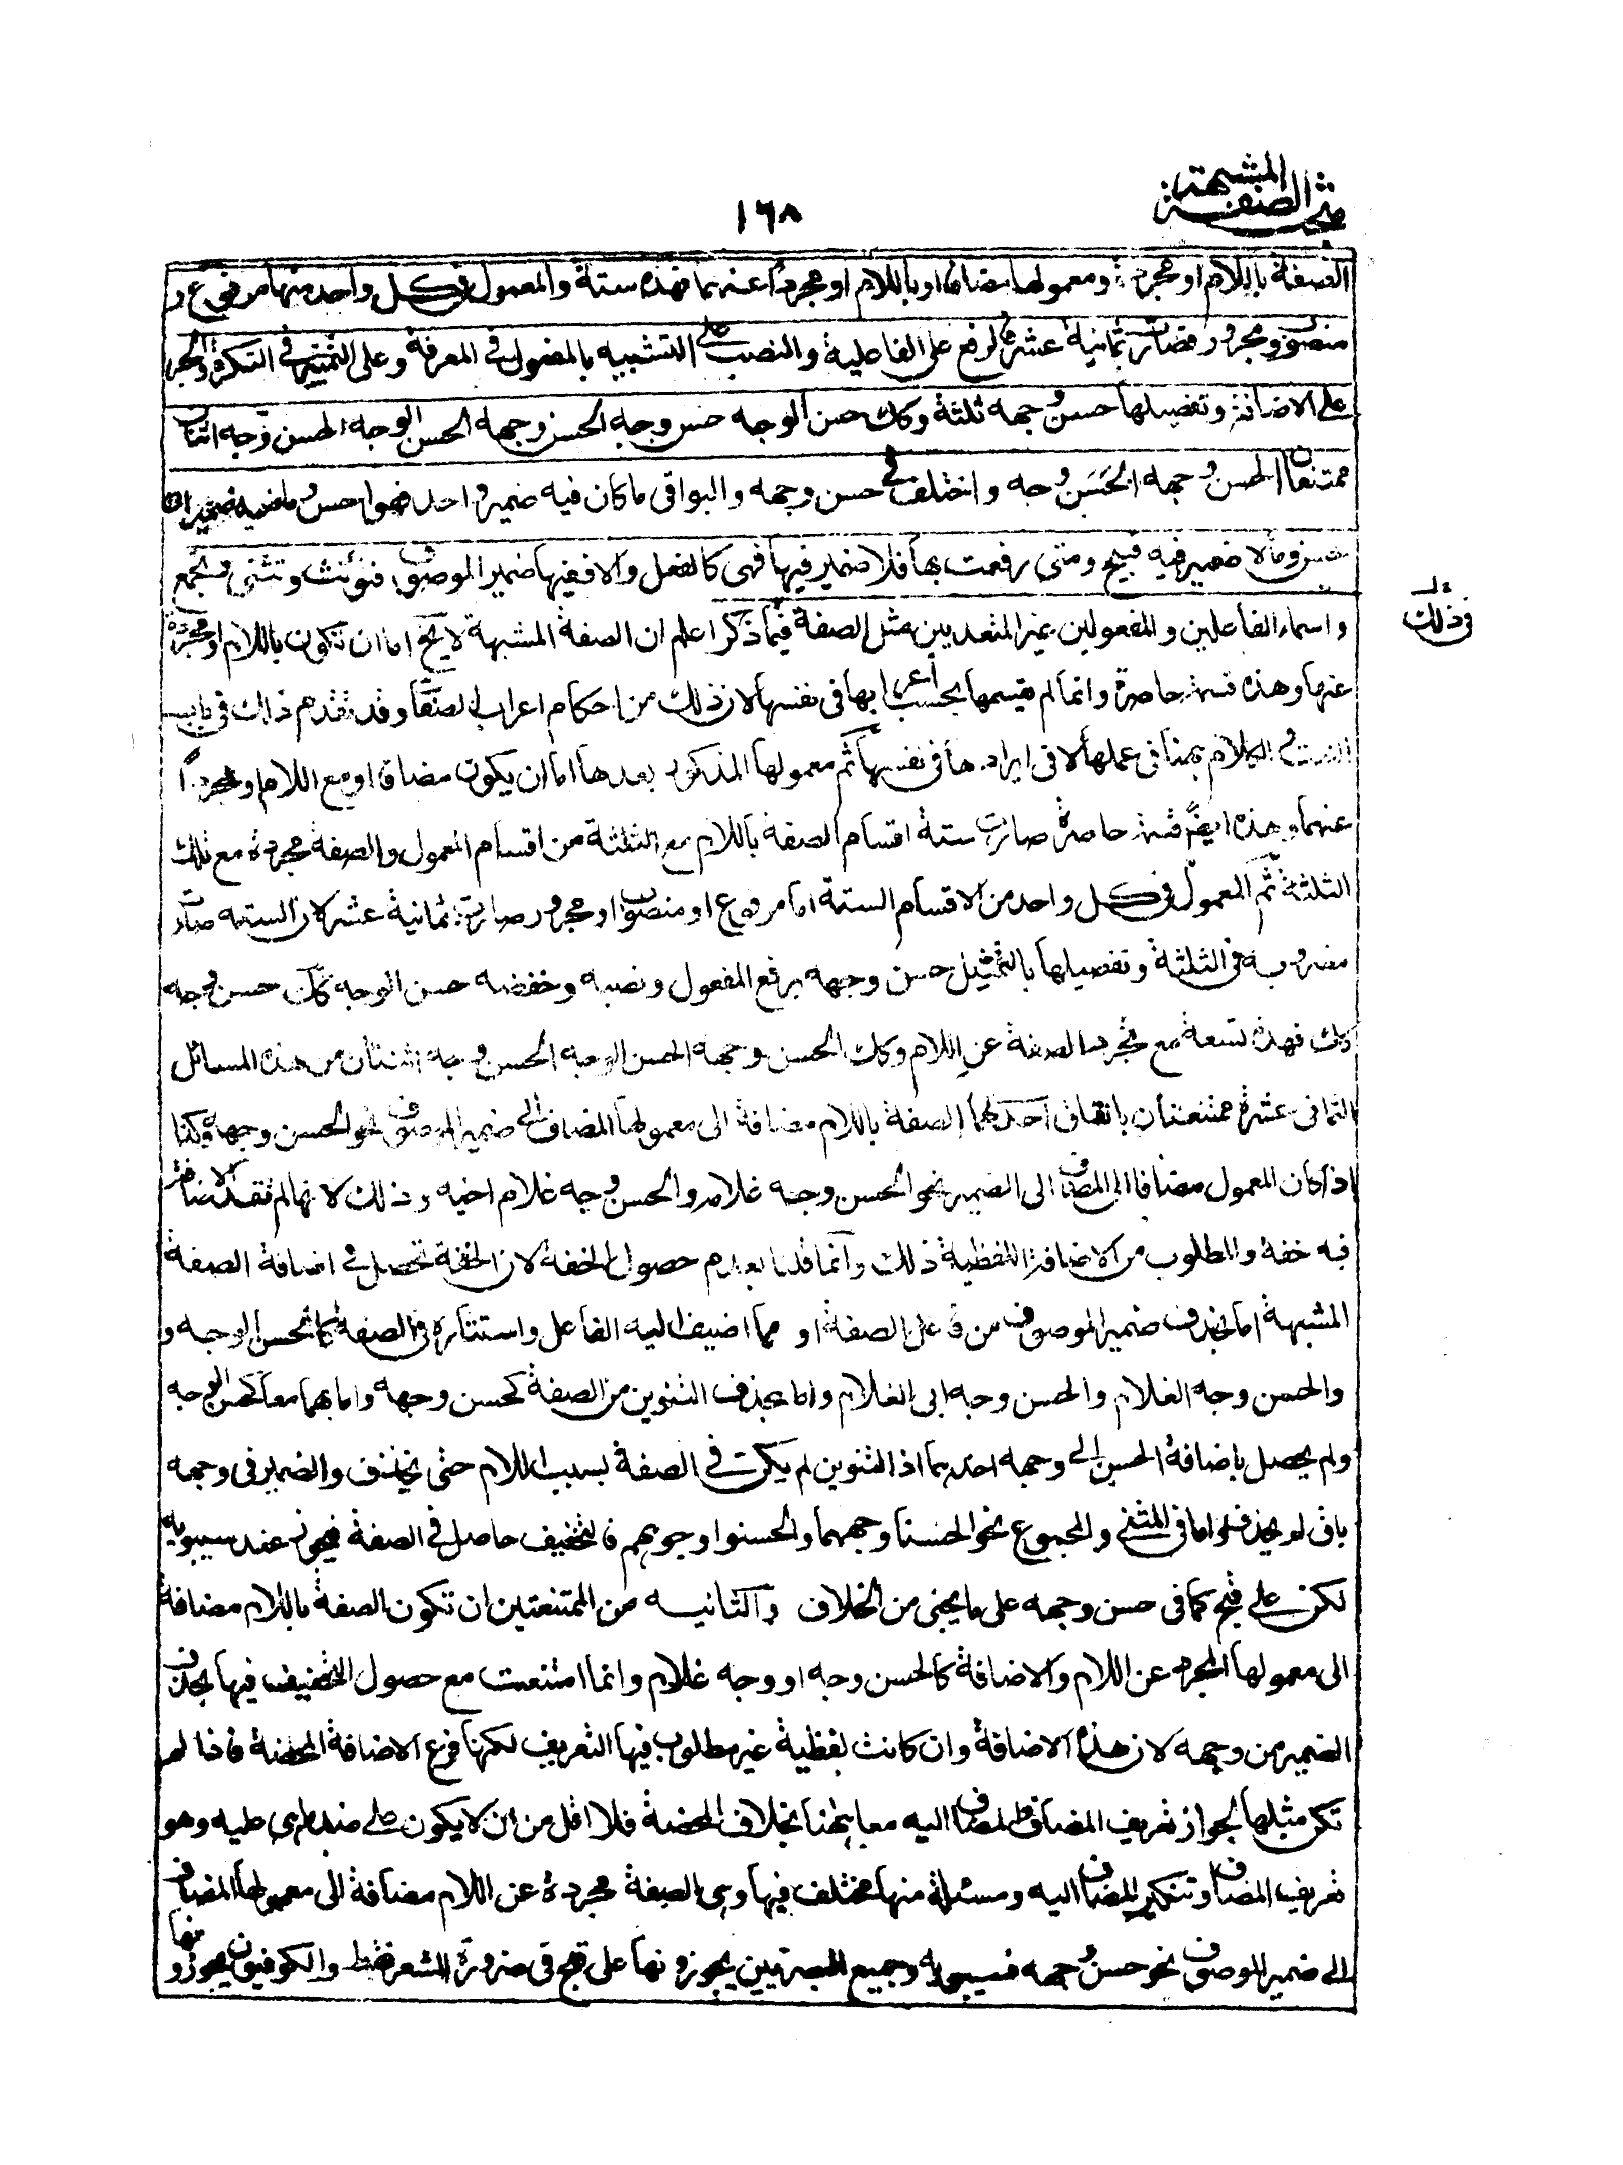 مبحث الصفة المشبهة
١٦٨
الصفة باللام او مجردة ومعمولها مضافا او باللام او مجردا عنهما فهذه ستة والمعمول فى كل واحد منها مرفوع و
منصوب ومجرور فصارت ثمانية عشر فالرفع على الفاعلية والنصب على التشبيه بالمفعول فى المعرفة وعلى التمييز فى النكرة والجر
على الاضافة وتفصيلها حسن وجهه ثلثة وكك حسن الوجه حسن وجه الحسن وجهه الحسن الوجه الحسن وجه اثنان
ممتنعان الحسن وجهه الحسن وجه واختلف فى حسن وجهه والبواقى ما كان فيه ضمير واحد فهو احسن وما فيه ضميران
حسن وما لا ضمير فيه قبيح ومتى رفعت بها فلا ضمير فيها فهى كالفعل والا ففيها ضمير الموصوف فتؤنث وتثنى وتجمع
واسماء الفاعلين والمفعولين غير المتعديين مثل الصفة فيما ذكر اعلم ان الصفة المشبهة لا يخ اما ان تكون باللام او مجردة
فى ذلك
عنها وهذه قسمة حاصرة وانما لم يقسمها بحسب اعرابها فى نفسها لان ذلك من احكام اعراب الصفة وقد تقدم ذلك فى باب
النعت والكلام هنا فى عملها لا فى ايرادها فى نفسها ثم معمولها المذكور بعدها اما ان يكون مضافا او مع اللام او مجردا
عنهما وهذه ايضا قسمة حاصرة صارت ستة اقسام الصفة باللام مع الثلثة من اقسام المعمول والصفة مجردة مع تلك
الثلثة ثم المعمول فى كل واحد من الاقسام الستة اما مرفوع او منصوب او مجرور صارت ثمانية عشر لان الستة صارت
مضروبة فى الثلثة وتفصيلها بالتمثيل حسن وجهه برفع المفعول ونصبه وخفضه حسن الوجه كك حسن وجه
كك فهذه تسعة مع تجرد الصفة عن اللام وكك الحسن وجهه الحسن الوجه الحسن وجه اثنتان من هذه المسائل
الثمانى عشرة ممتنعتان باتفاق احدهما الصفة باللام مضافة الى معمولها المضاف الى ضمير الموصوف نحو الحسن وجهه وكذا
اذا كان المعمول مضافا الى المضاف الى الضمير نحو الحسن وجه غلامه والحسن وجه غلام اخيه وذلك لانها لم تفد الاضافة
فيه خفة والمطلوب من الاضافة اللفظية ذلك وانما قلنا بعدم حصول الخفة لان الخفة تحصل فى اضافة الصفة
المشبهة اما بحذف ضمير الموصوف من فاعل الصفة او مما اضيف اليه الفاعل واستتاره فى الصفة كالحسن الوجه و
والحسن وجه الغلام والحسن وجه ابى الغلام واما بحذف التنوين من الصفة كحسن وجهه واما بهما معا كحسن الوجه
ولم يحصل باضافة الحسن الى وجهه احدهما اذ التنوين لم يكن فى الصفة بسبب اللام حتى يحذف والضمير فى وجهه
باق لم يحذف واما فى المثنى والمجموع نحو الحسنا وجههما والحسنوا وجوههم فالتخفيف حاصل فى الصفة فيجوز عند سيبويه
لكن على قبح كما فى حسن وجهه على ما يجئ من الخلاف والثانية من الممتنعتين ان تكون الصفة باللام مضافة
الى معمولها المجرد عن اللام والاضافة كالحسن وجه او وجه غلام وانما امتنعت مع حصول التخفيف فيها بحذف
الضمير من وجهه لان هذه الاضافة وان كانت لفظية غير مطلوب فيها التعريف لكنها فرع الاضافة المحضة فاذا لم
تكن مثلها لجواز تعريف المضاف والمضاف اليه معا هنا بخلاف المحضة فلا اقل من ان لا يكون على ضد ما هى عليه وهو
تعريف المضاف وتنكير المضاف اليه ومسئلة منها مختلف فيها وهى الصفة مجردة عن اللام مضافة الى معمولها المضاف
الى ضمير الموصوف نحو حسن وجهه فسيبويه وجميع البصريين يجوزونها على قبح فى ضرورة الشعر فقط والكوفيون يجوزونها